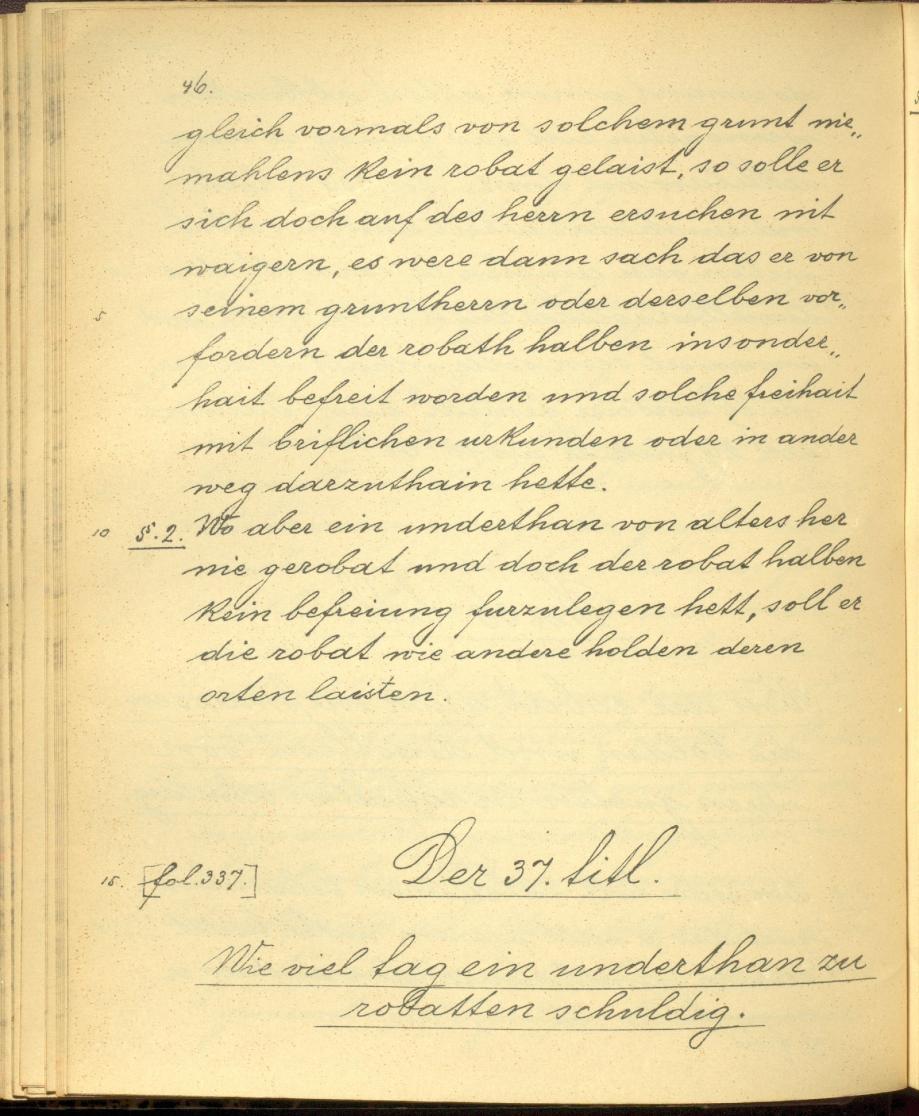 46.
gleich vormals von solchem grunt nie„
mahlens kein robat gelaist, so solle er
sich doch auf des herrn ersuchen nit
waigern, es were dann sach das er von
5 seinem gruntherrn oder derselben vor„
fordern der robath halben insonder„
hait befreit worden und solche freihait
mit briflichen urkunden oder in ander
weg darzuthain hette.
10 §. 2. Wo aber ein underthan von alters her
nie gerobat und doch der robat halben
kein befreiung furzulegen hett, soll er
die robat wie andere holden deren
orten laisten.
15. [fol. 337.] Der 37. titl.
Wie viel tag ein underthan zu
robatten schuldig.